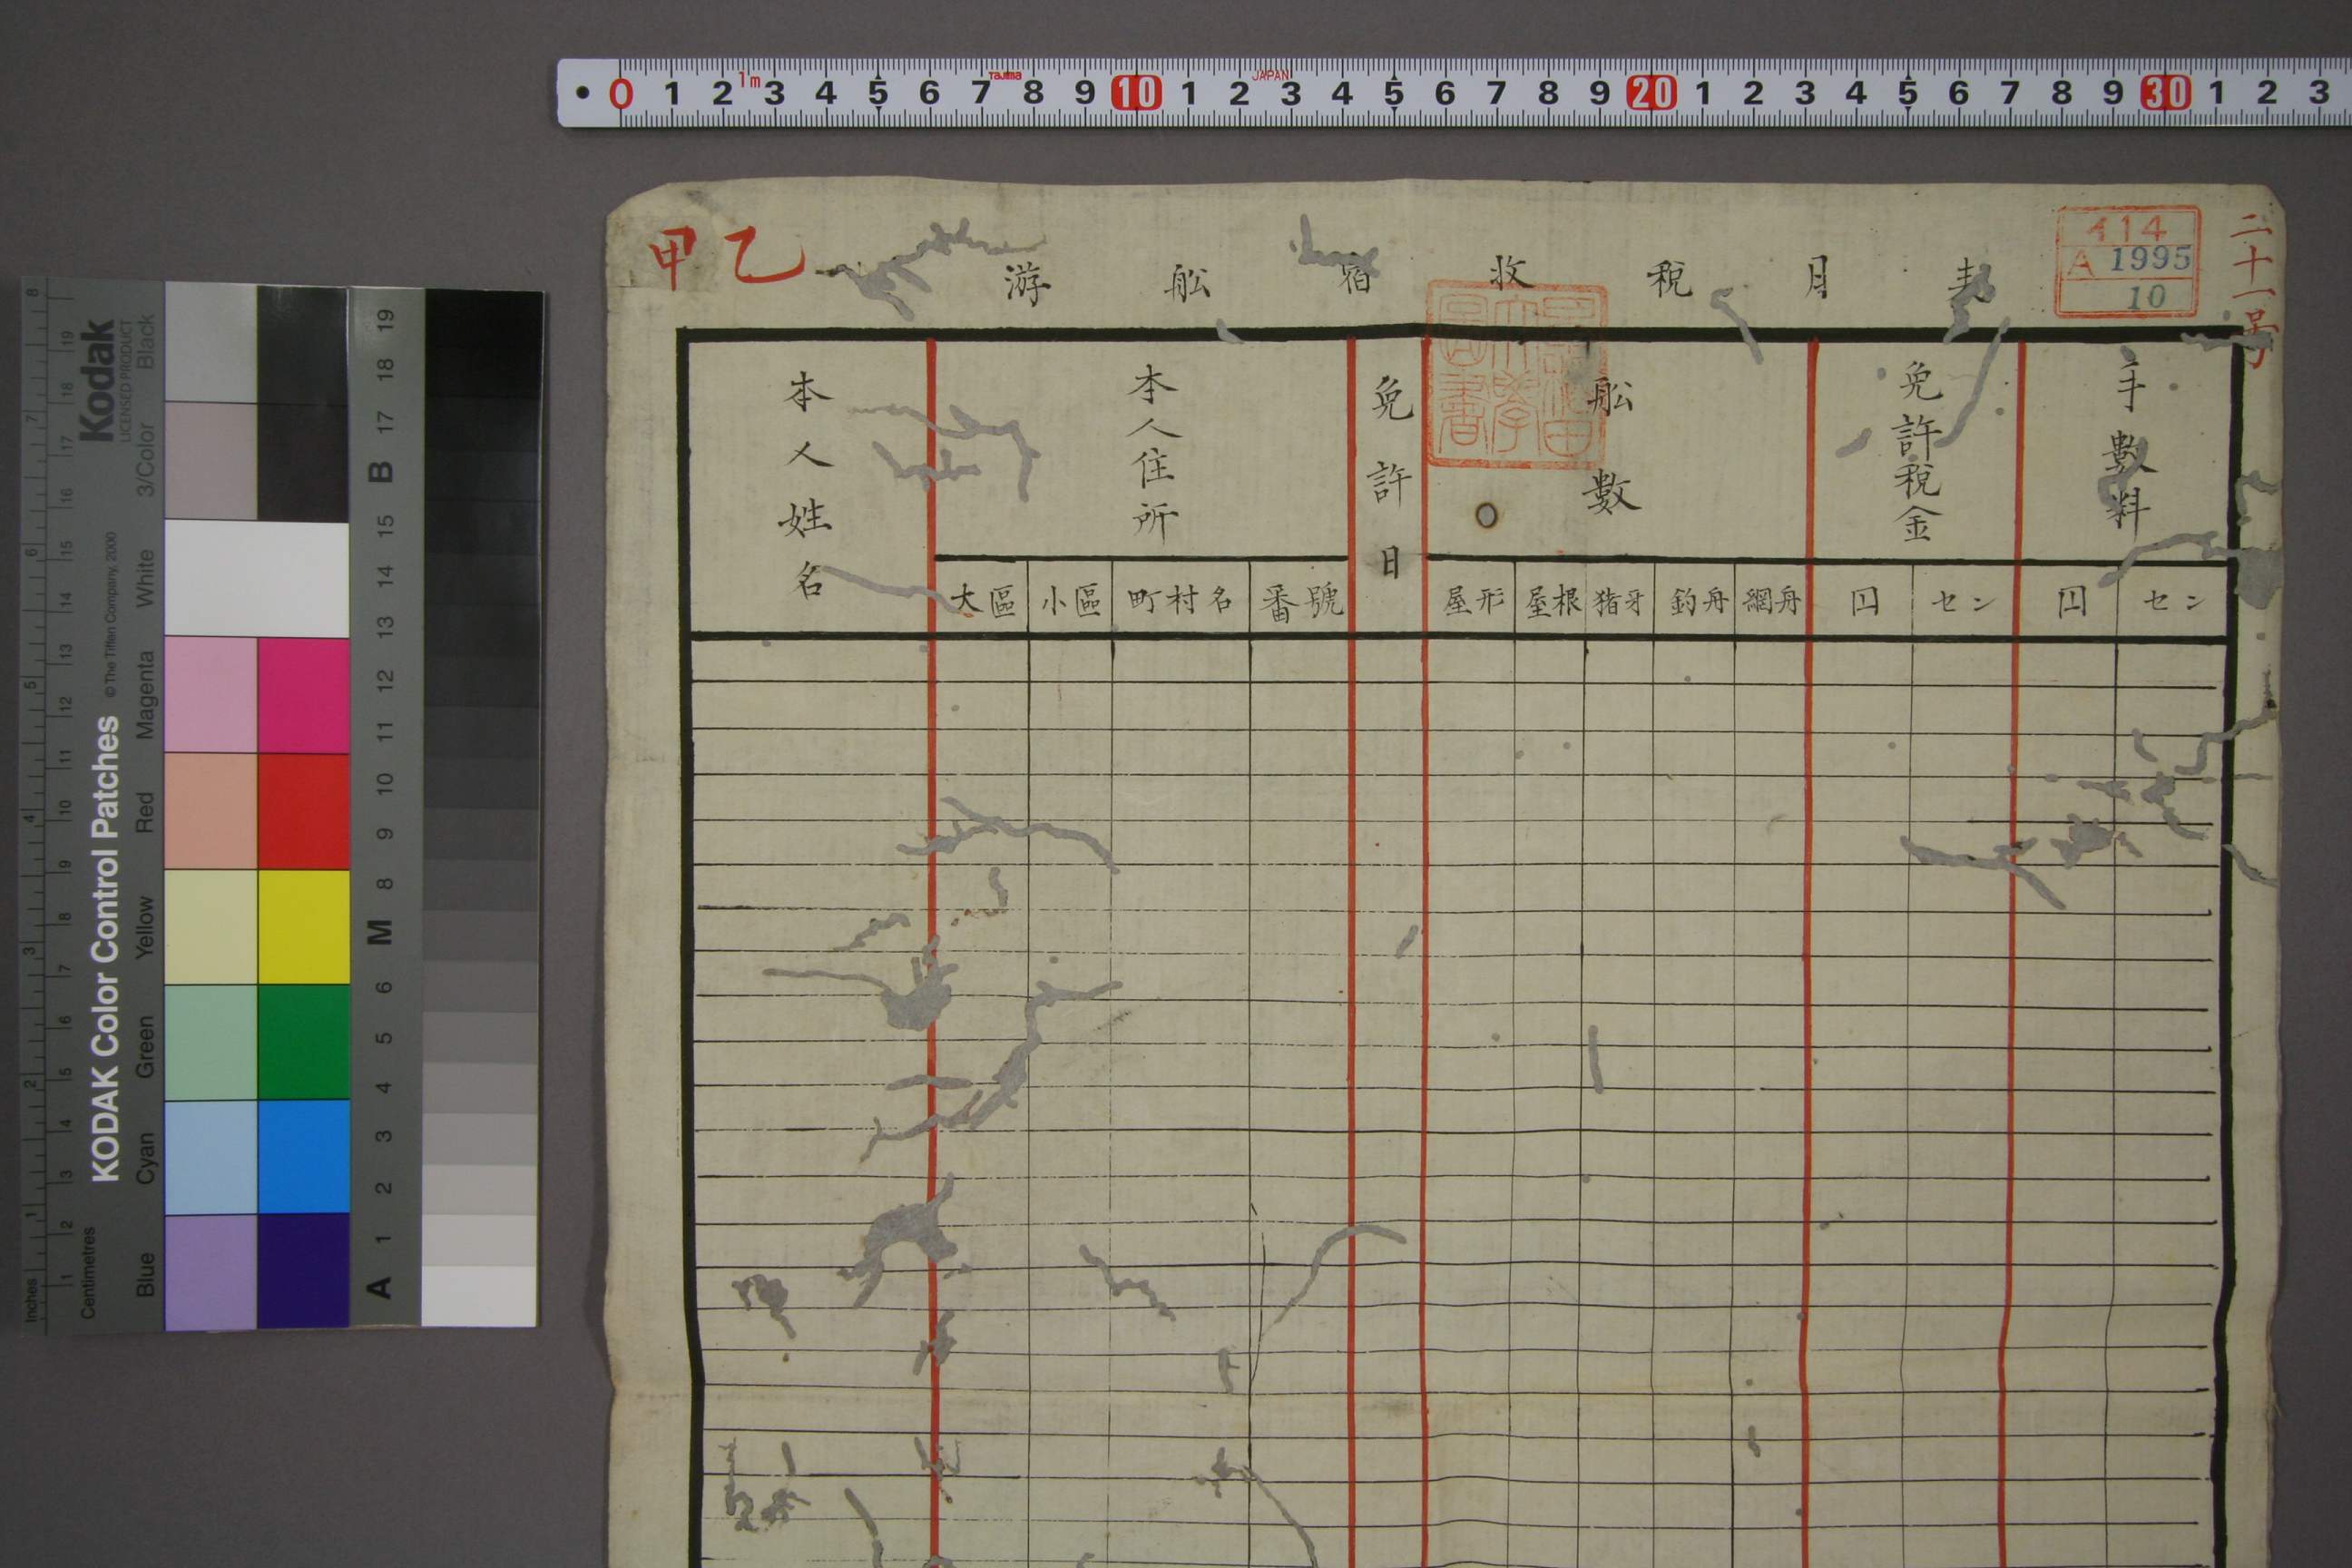 0 1 2 3 4 5 6 7 8 9 10 1 2 3 4 5 6 7 8 9 20 1 2 3 4 5 6 7 8 9 30 1 2 3
1m Tajima JAPAN
甲 乙
游舩宿收税月表
414
A 1995
10
二十一号
本人姓名
本人住所
免許日
舩數
免許税金
手數料
大區 小區 町村名 番號 屋形 屋根 猪牙 釣舟 網舟 円 セン 円 セン
Kodak
LICENSED PRODUCT
KODAK Color Control Patches
© The Tiffen Company, 2000
Inches 1 2 3 4 5 6 7 8
Centimetres 1 2 3 4 5 6 7 8 9 10 11 12 13 14 15 16 17 18 19
Blue Cyan Green Yellow Red Magenta White 3/Color Black
A 1 2 3 4 5 6 M 8 9 10 11 12 13 14 15 B 17 18 19